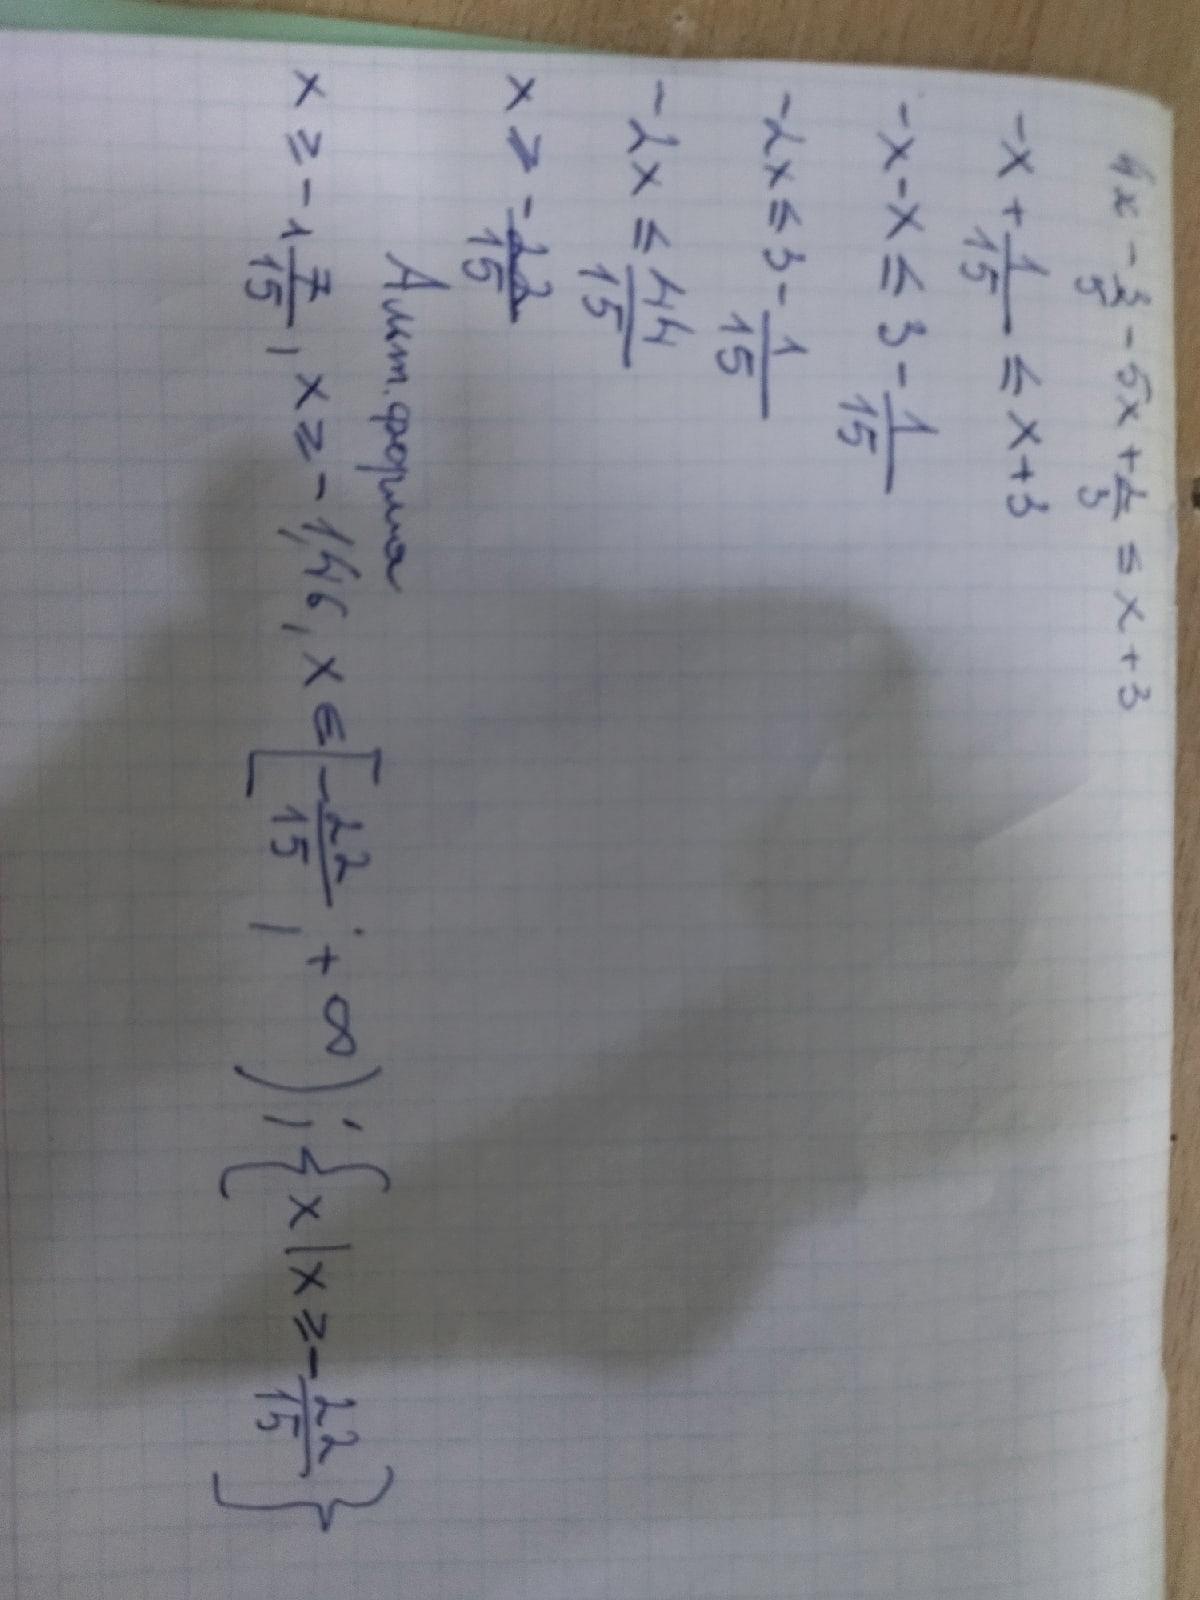 4x - 3/5 - 5x + 2/3 ≤ x + 3
-x + 1/15 ≤ x + 3
-x - x ≤ 3 - 1/15
-2x ≤ 3 - 1/15
-2x ≤ 44/15
x ≥ - 22/15
Альт. форма
x ≥ - 1 7/15, x ≥ - 1,46, x ∈ [- 22/15; + ∞); {x | x ≥ - 22/15}